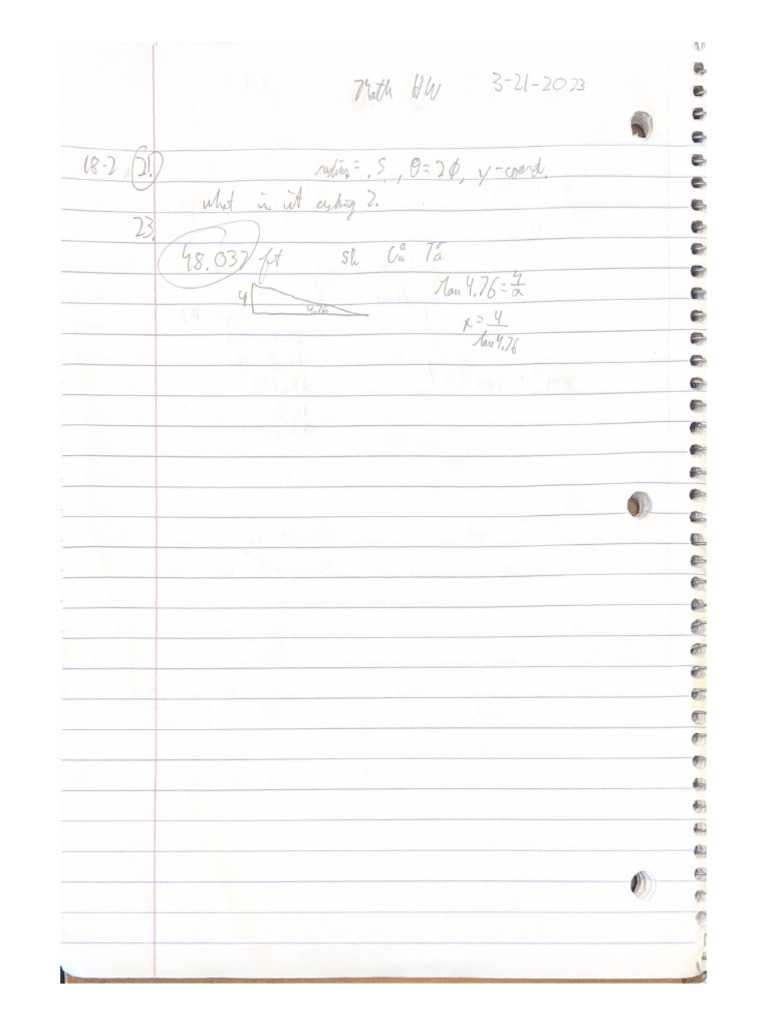 Math HW 3-21-2023
18-2 21. radius = .5, θ=2ϕ, y-coord.
what is it asking?
23.
48.037 ft
tan 4.76 = 4/x
4
4.76
x = 4/tan 4.76